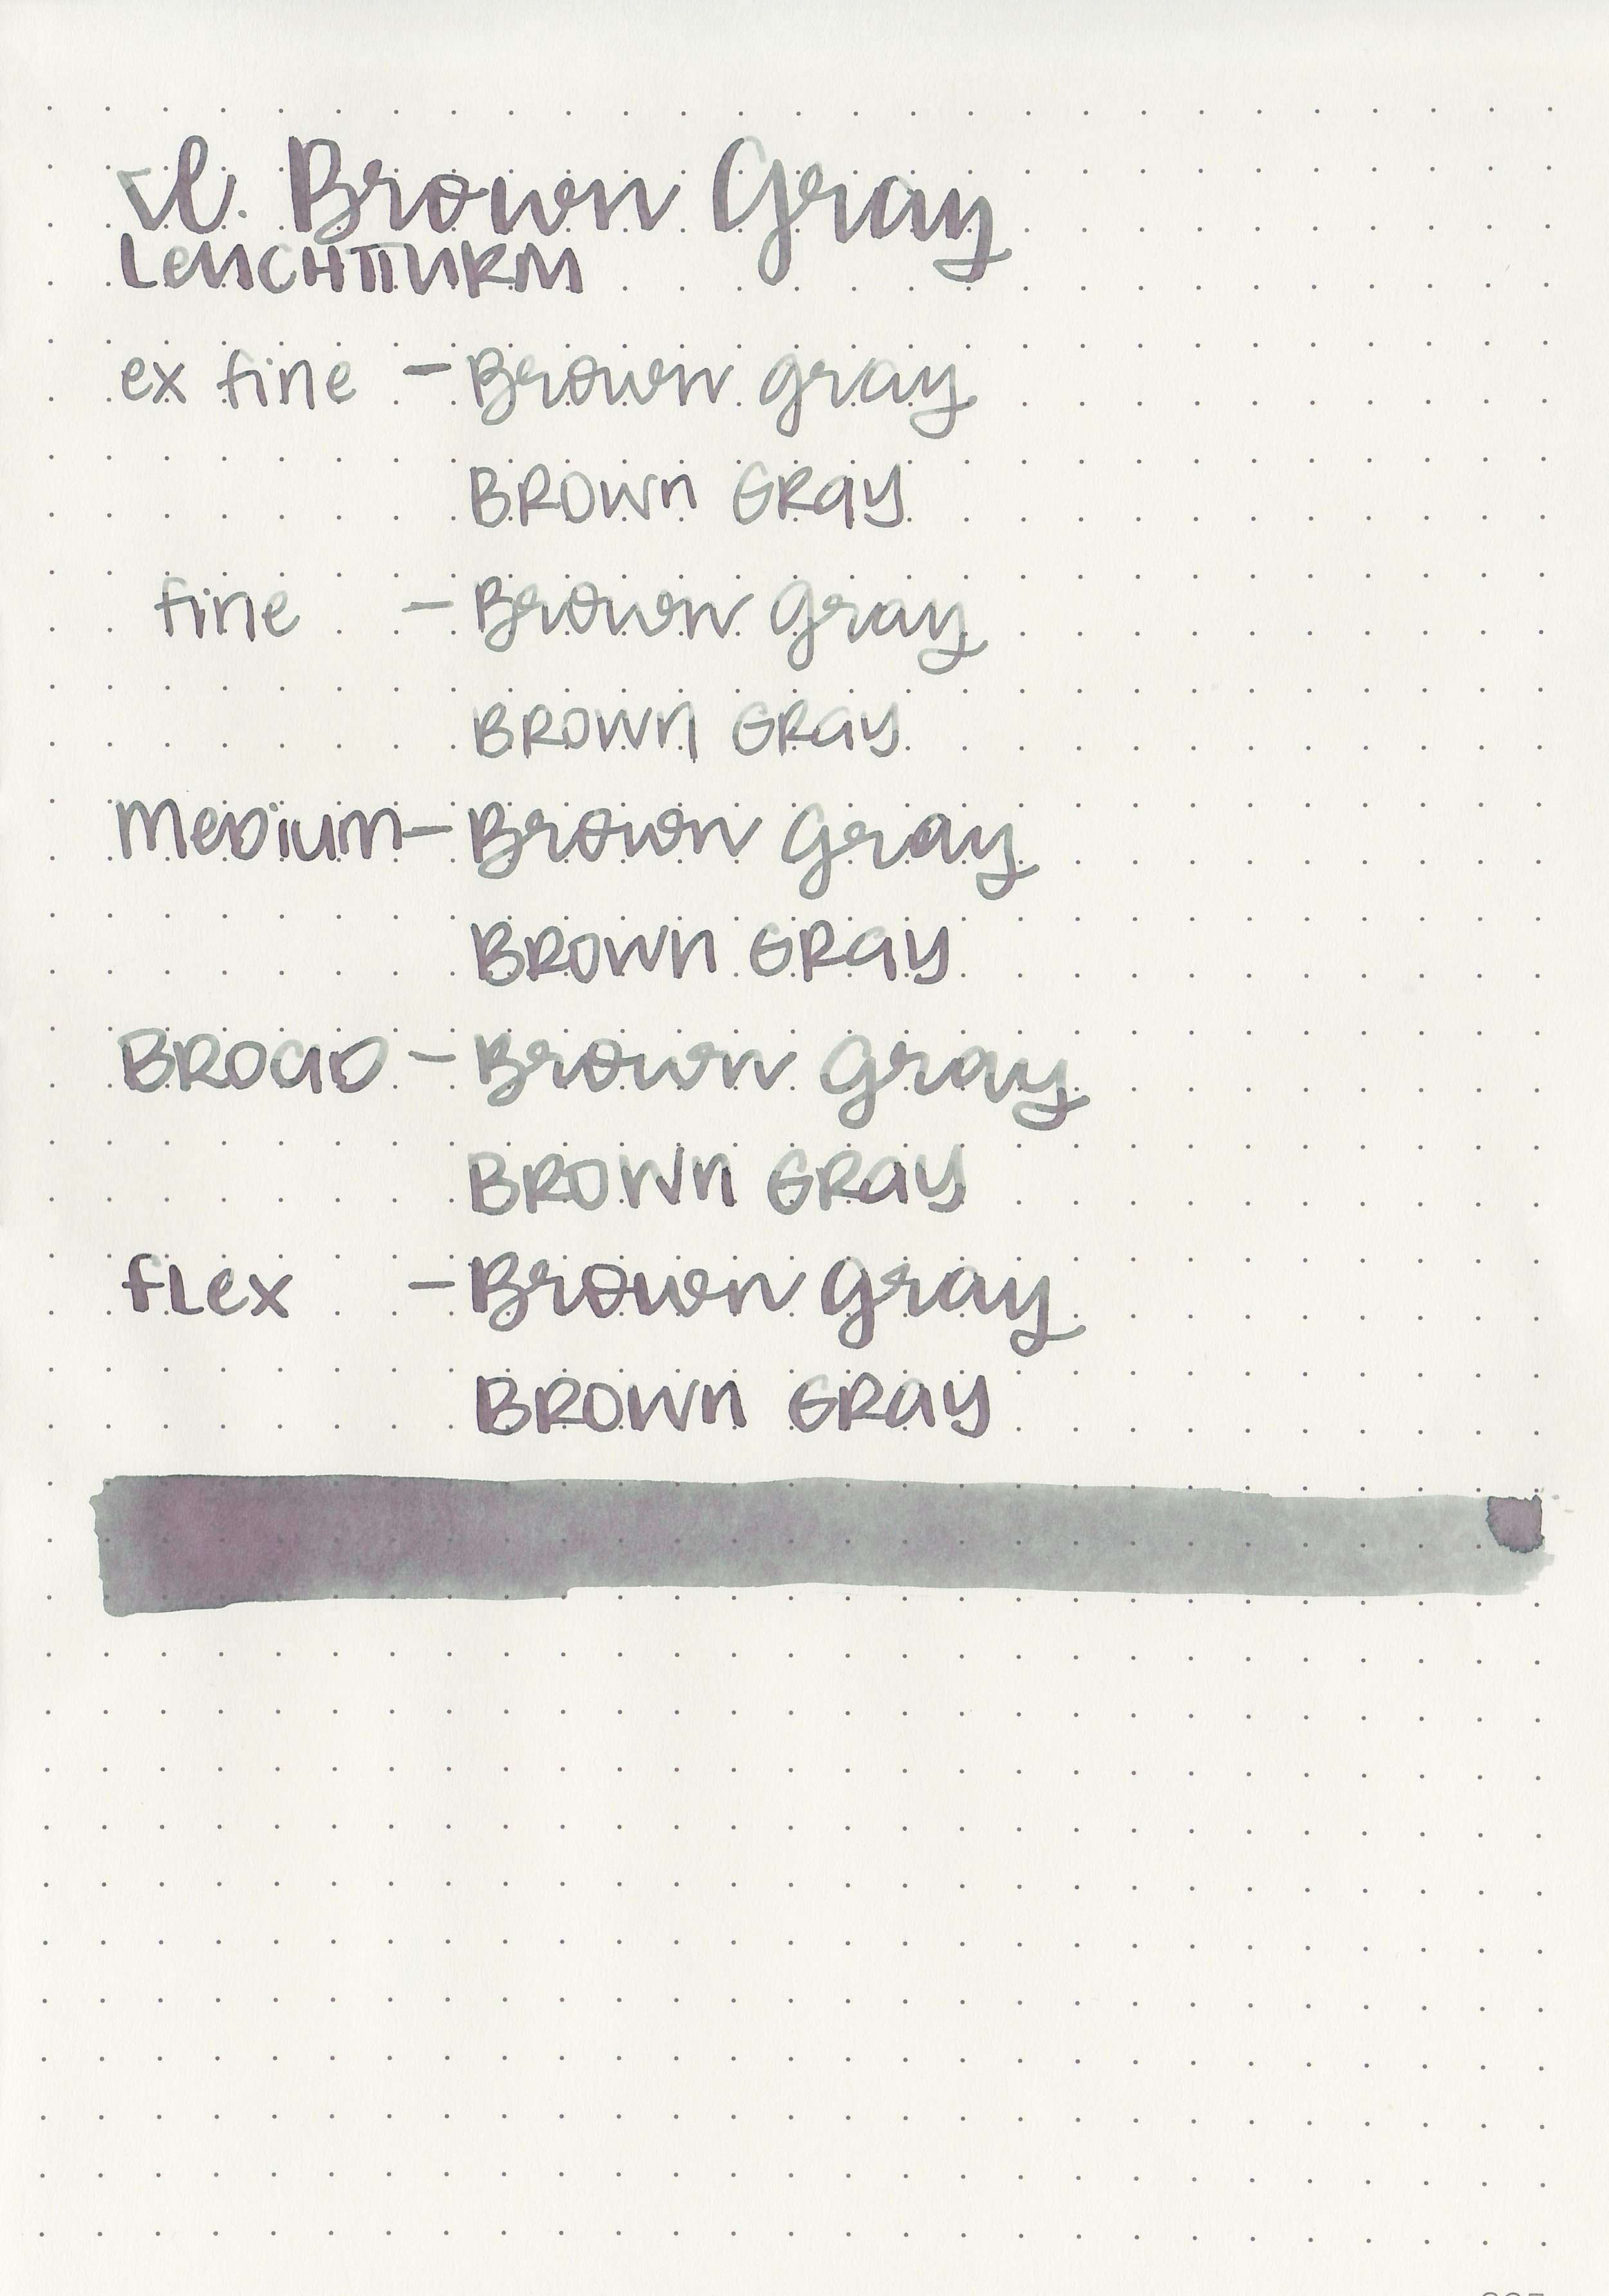 Vl. Brown Gray
LEUCHTTURM
ex fine - Brown gray
BROWN GRAY
fine - Brown Gray
BROWN GRAY
MEDIUM - Brown Gray
BROWN GRAY
BROAD - Brown Gray
BROWN GRAY
fLex - Brown Gray
BROWN GRAY